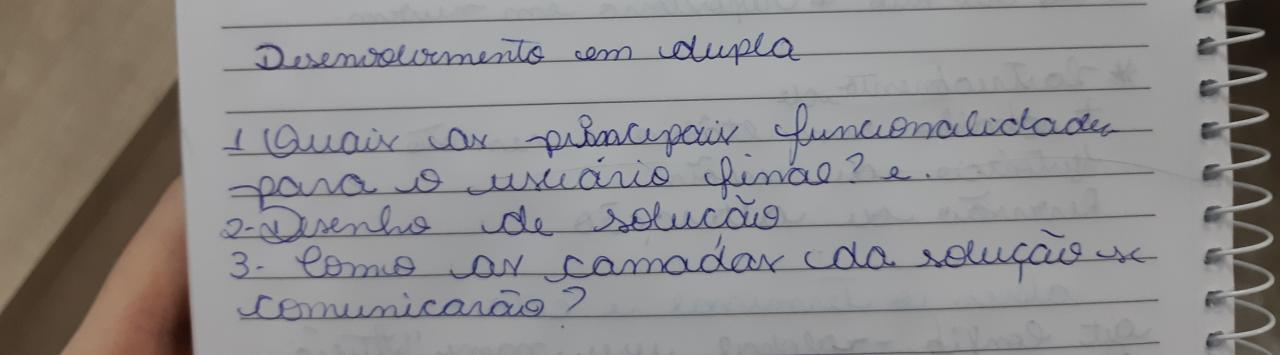 Desenvolvimento em dupla
1 Quais as principais funcionalidades
para o usuário final? e.
2- Desenho de solução
3- Como as camadas da solução se
comunicarão?